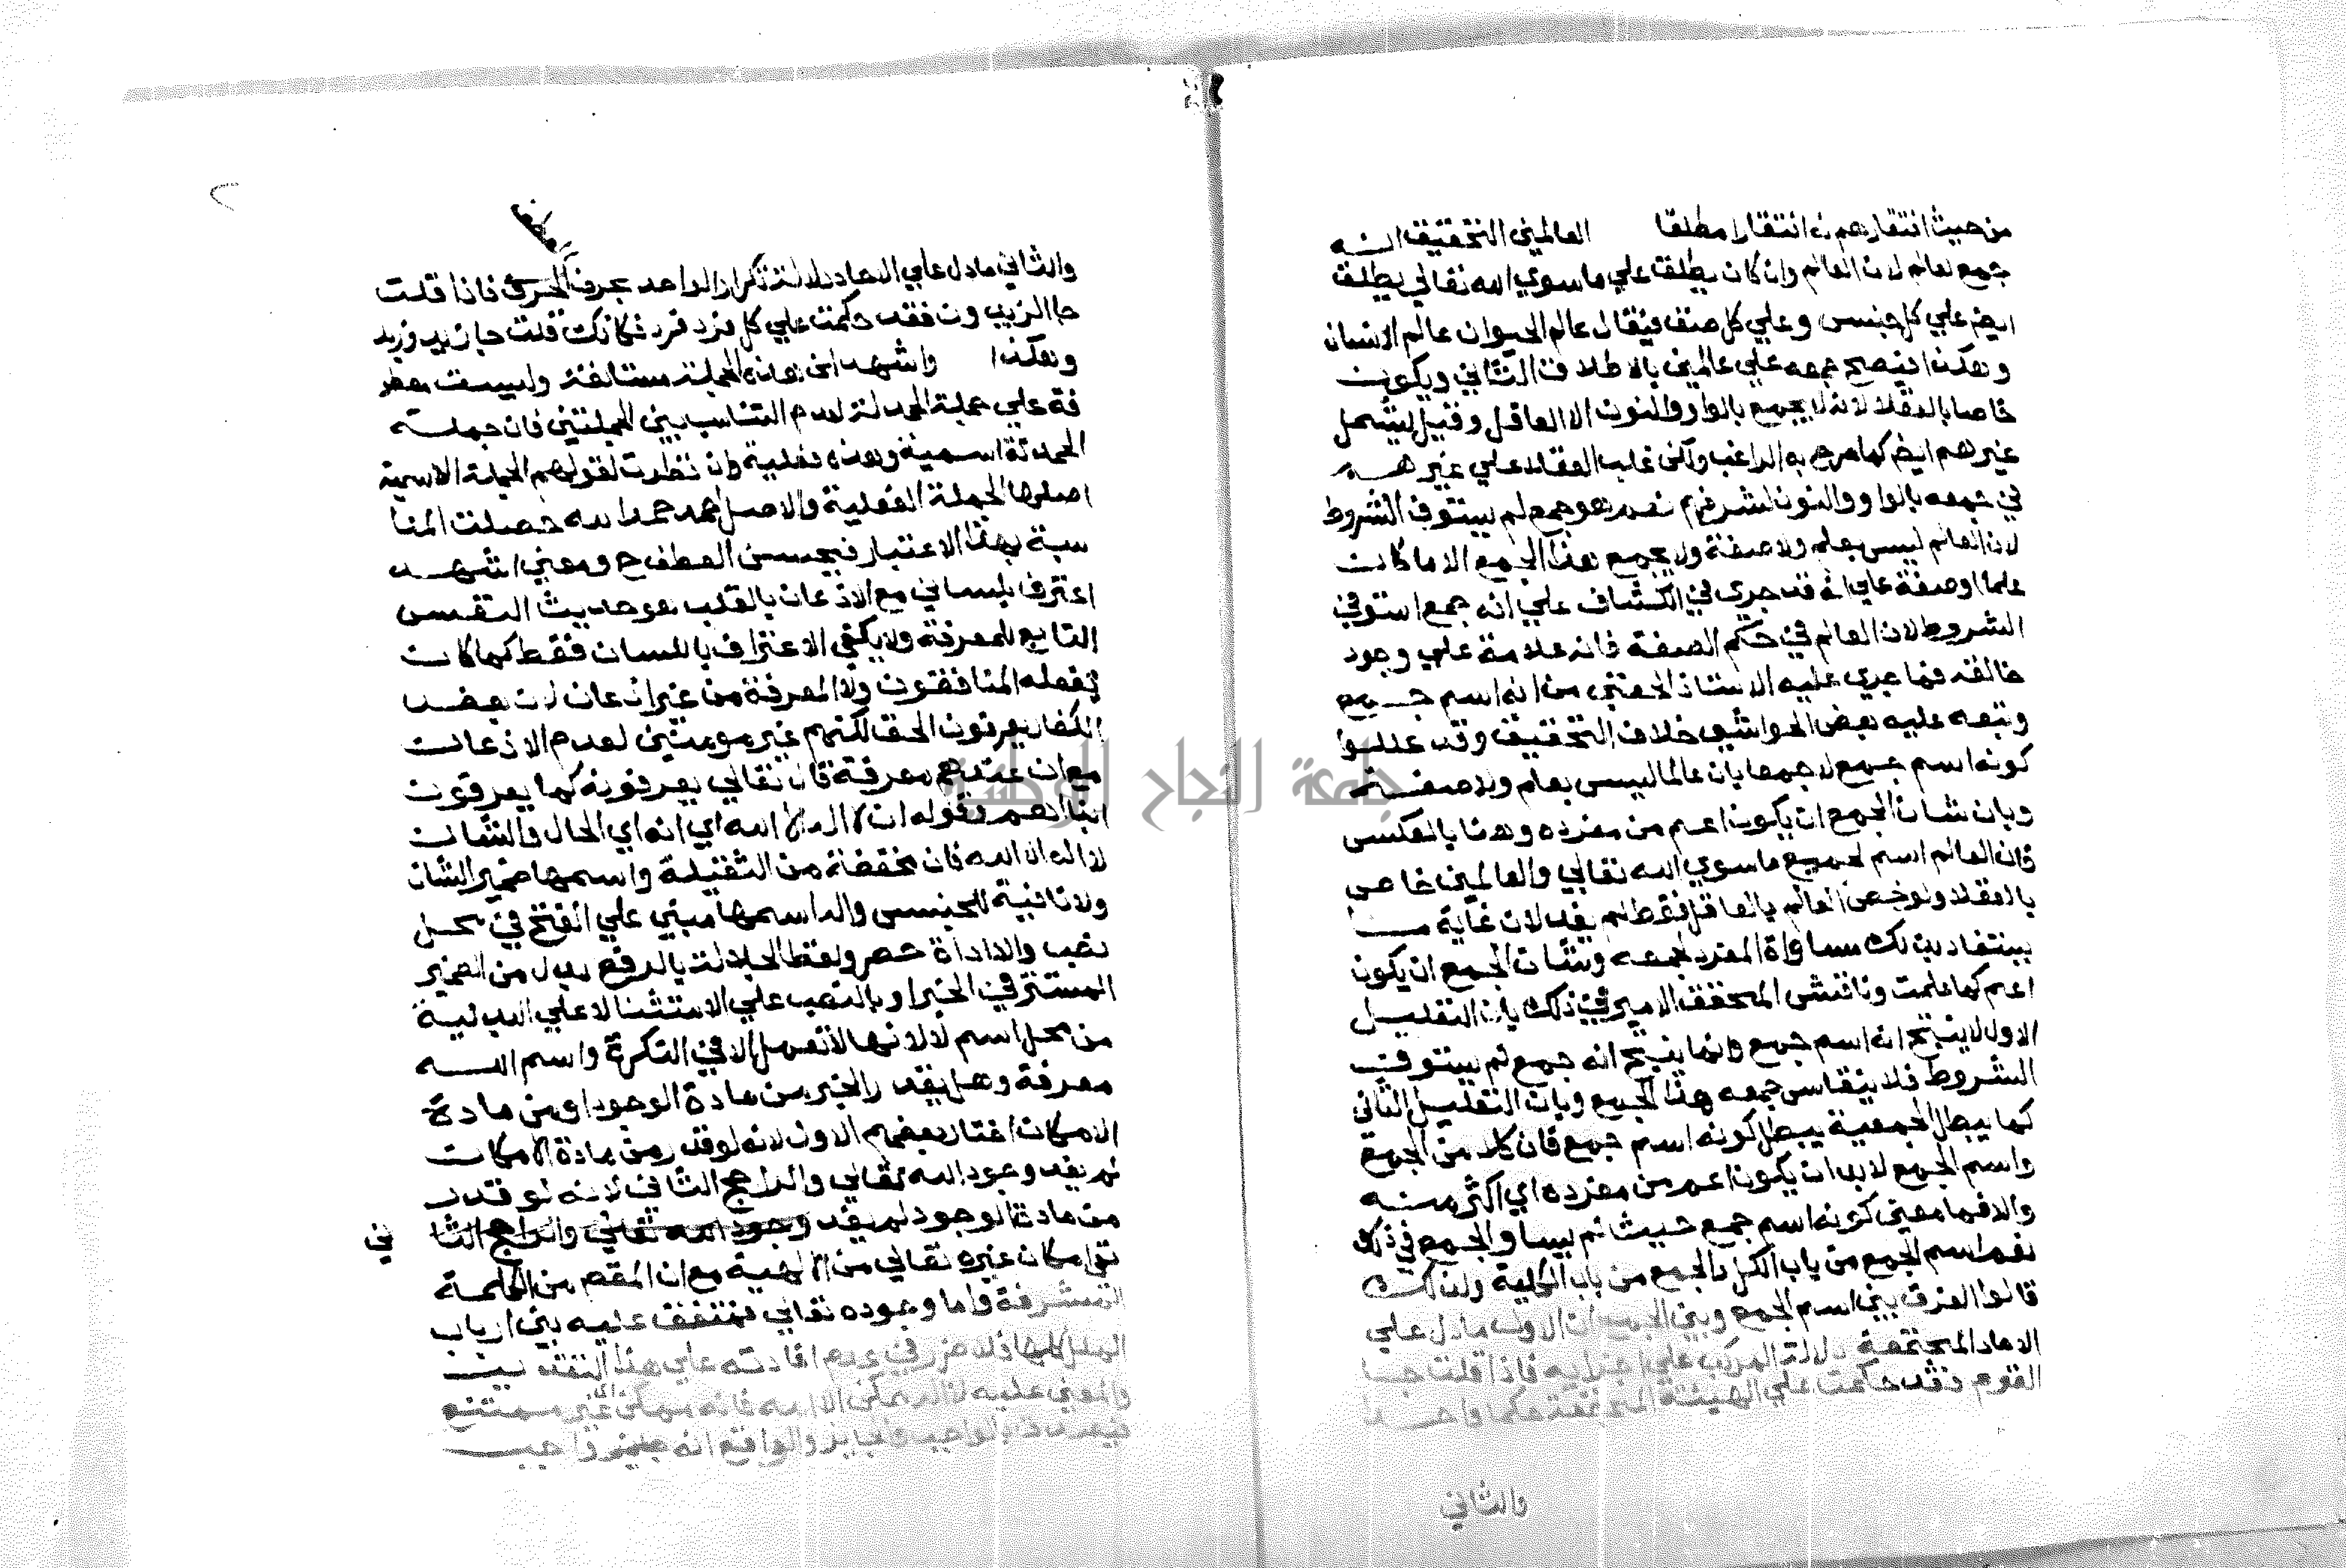 من حيث افتقارهم له افتقارا مطلقا العالمين التحقيق انه
جمع لعالم لان العالم وان كان يطلق علي ما سوي الله تقالي يطلق
ايض علي كل جنس وعلي كل صنف فيقال عالم الحيوان عالم الانسان
وهكذا فيصح جمعه علي عالمين بالاطلاق الثاني ويكون
خاصا بالعقلا لانه لا يجمع بالواو والنون الا العاقل وقيل يشمل
غيرهم ايض كما صرح به الراغب ولكن غلب العقلا علي غيرهم
في جمعه بالواو والنون لشرفهم نعم هو جمع لم يستوف الشروط
لان العالم ليس بعلم ولا صفة ولا يجمع هذا الجمع الا ما كان
علما او صفة علي انه قد جري في الكشاف علي انه جمع استوفي
الشروط لان العالم في حكم الصفة فانه علامة علي وجود
خالقه فما جري عليه الاستاذ الحفني من انه اسم جمع
وتبعه عليه بعض الحواشي خلاف التحقيق وقد عللوا
كونه اسم جمع لا جمعا بان عالما ليس بعلم ولا صفة
وبان شان الجمع ان يكون اعم من مفرده وهنا بالعكس
فان العالم اسم لجميع ما سوي الله تقالي والعالمين خاص
بالعقلا ولو خص العالم بالعاقل فقط لم يفد لان غاية ما
يستفاد بذلك مساواة المفرد لجمعه وشان الجمع ان يكون
اعم كما علمت وناقش المحقق الامير في ذلك بان التعليل
الاول لا ينتج انه اسم جمع وانما ينتج انه جمع لم يستوف
الشروط فلا ينقاس جمعه هذا الجمع وبان التعليل الثاني
كما يبطل الجمعية يبطل كونه اسم جمع فان كلا من الجمع
واسم الجمع لا بد ان يكون اعم من مفرده اي اكثر منه
والا فما معني كونه اسم جمع حيث لم يساو الجمع في ذلك
نعم اسم الجمع من باب الكل والجمع من باب الكلية ولذلك
قالوا الفرق بين اسم الجمع وبين الجمع ان الاول ما دل علي
الاحاد المجتمعة دلالة المركب علي اجزايه فاذا قلت جا
القوم فقد حكمت علي الهيئة المجتمعة حكما واحدا
والثاني
والثاني ما دل علي الاحاد دلالة تكرار الواحد بحرف العطف فاذا قلت
جا الزيدون فقد حكمت علي كل فرد فرد فكانك قلت جا زيد وزيد
وهكذا واشهد ان هذه الجملة مستانفة وليست معطو
فة علي جملة الحمدلة لعدم التناسب بين الجملتين فان جملة
الحمدلة اسمية وهذه فعلية وان نظرت لقولهم الجملة الاسمية
اصلها الجملة الفعلية والاصل احمد حمدا لله حصلت المنا
سبة بهذا الاعتبار فيحسن العطف ح ومعني اشهد
اعترف بلساني مع الاذعان بالقلب هو حديث النفس
التابع للمعرفة ولا يكفي الاعتراف باللسان فقط كما كان
تفعله المنافقون ولا المعرفة من غير اذعان لان بعض
الكفار يعرفون الحق لكنهم غير مومنين لعدم الاذعان
مع ان عندهم معرفة قال تقالي يعرفونه كما يعرفون
ابناهم وقوله ان لا اله الا الله اي انه اي الحال والشان
لا اله الا الله فان مخففة من الثقيلة واسمها ضمير الشان
ولا نافية للجنس واله اسمها مبني علي الفتح في محل
نصب والا اداة حصر ولفظ الجلالة بالرفع بدل من الضمير
المستتر في الخبر او بالنصب علي الاستثنا لا علي البدلية
من محل اسم لا لانها لا تعمل الا في النكرة واسم الله
معرفة وهل يقدر الخبر من مادة الوجود او من مادة
الامكان اختار بعضهم الاول لانه لو قدر من مادة الامكان
لم يفد وجود الله تقالي والراجح الثاني لانه لو قدر
من مادة الوجود لم يفد وجود الله تقالي والراجح الثا ني
نفي امكان غيره تقالي من الالهية مع ان المقص من الكلمة
المشرفة واما وجوده تقالي فمتفق عليه بين ارباب
الملل كلها فلا ضرر في عدم افادته علي هذا التقدير
والمعني عليه لا اله ممكن الا الله فانه ممكن غير ممتنع
فيصدق بالواجب والجايز والواقع انه واجب